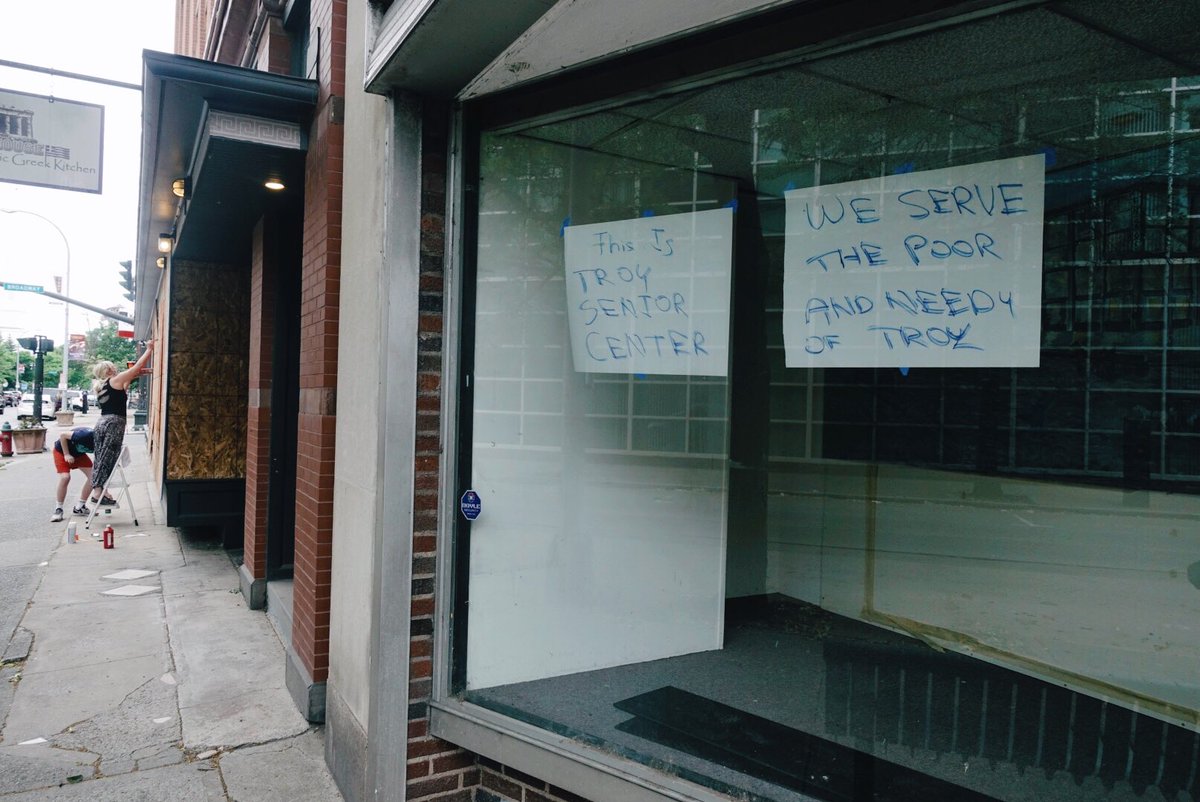 HOUSE
ic Greek Kitchen
BROADWAY
This Is
TROY
SENIOR
CENTER
WE SERVE
THE POOR
AND NEEDY
OF TROY
DOYLE